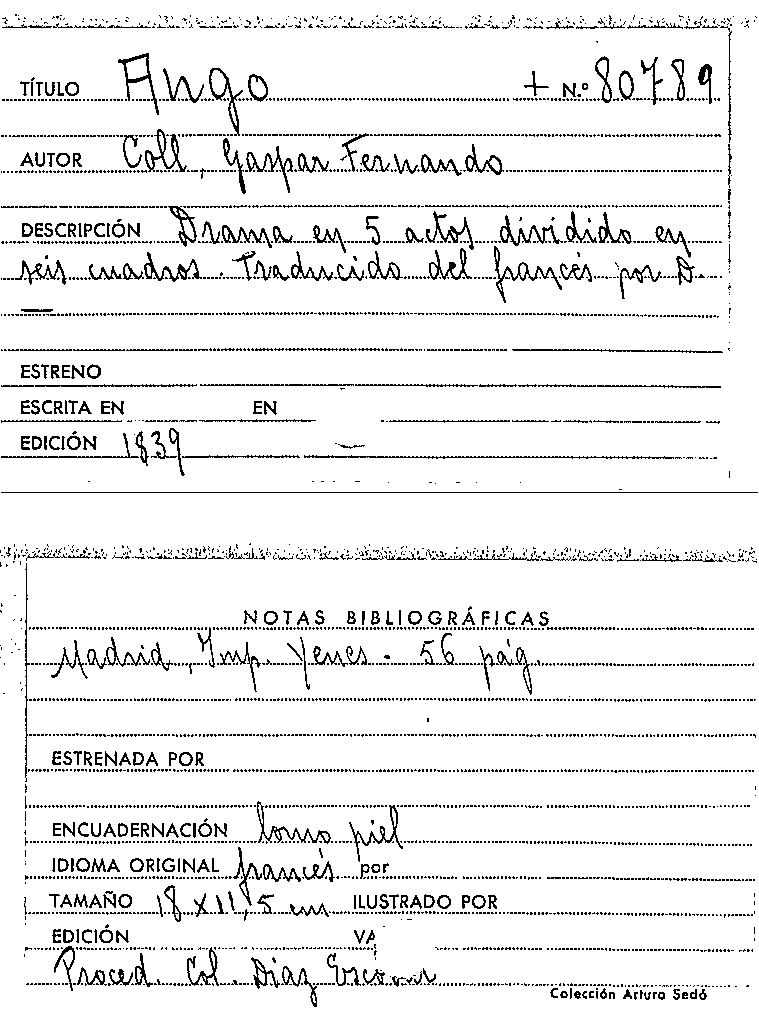 TÍTULO Ango + N.º 80789
AUTOR Coll, Gaspar Fernando
DESCRIPCIÓN Drama en 5 actos dividido en
seis cuadros. Traducido del francés por D.
—
ESTRENO
ESCRITA EN EN
EDICIÓN 1839 —
NOTAS BIBLIOGRÁFICAS
Madrid, Imp. Yenes. 56 pág.
ESTRENADA POR
ENCUADERNACIÓN lomo piel
IDIOMA ORIGINAL francés por
TAMAÑO 18 x 11,5 cm ILUSTRADO POR
EDICIÓN VA
Proced. Col. Díaz Escovar
Colección Arturo Sedó